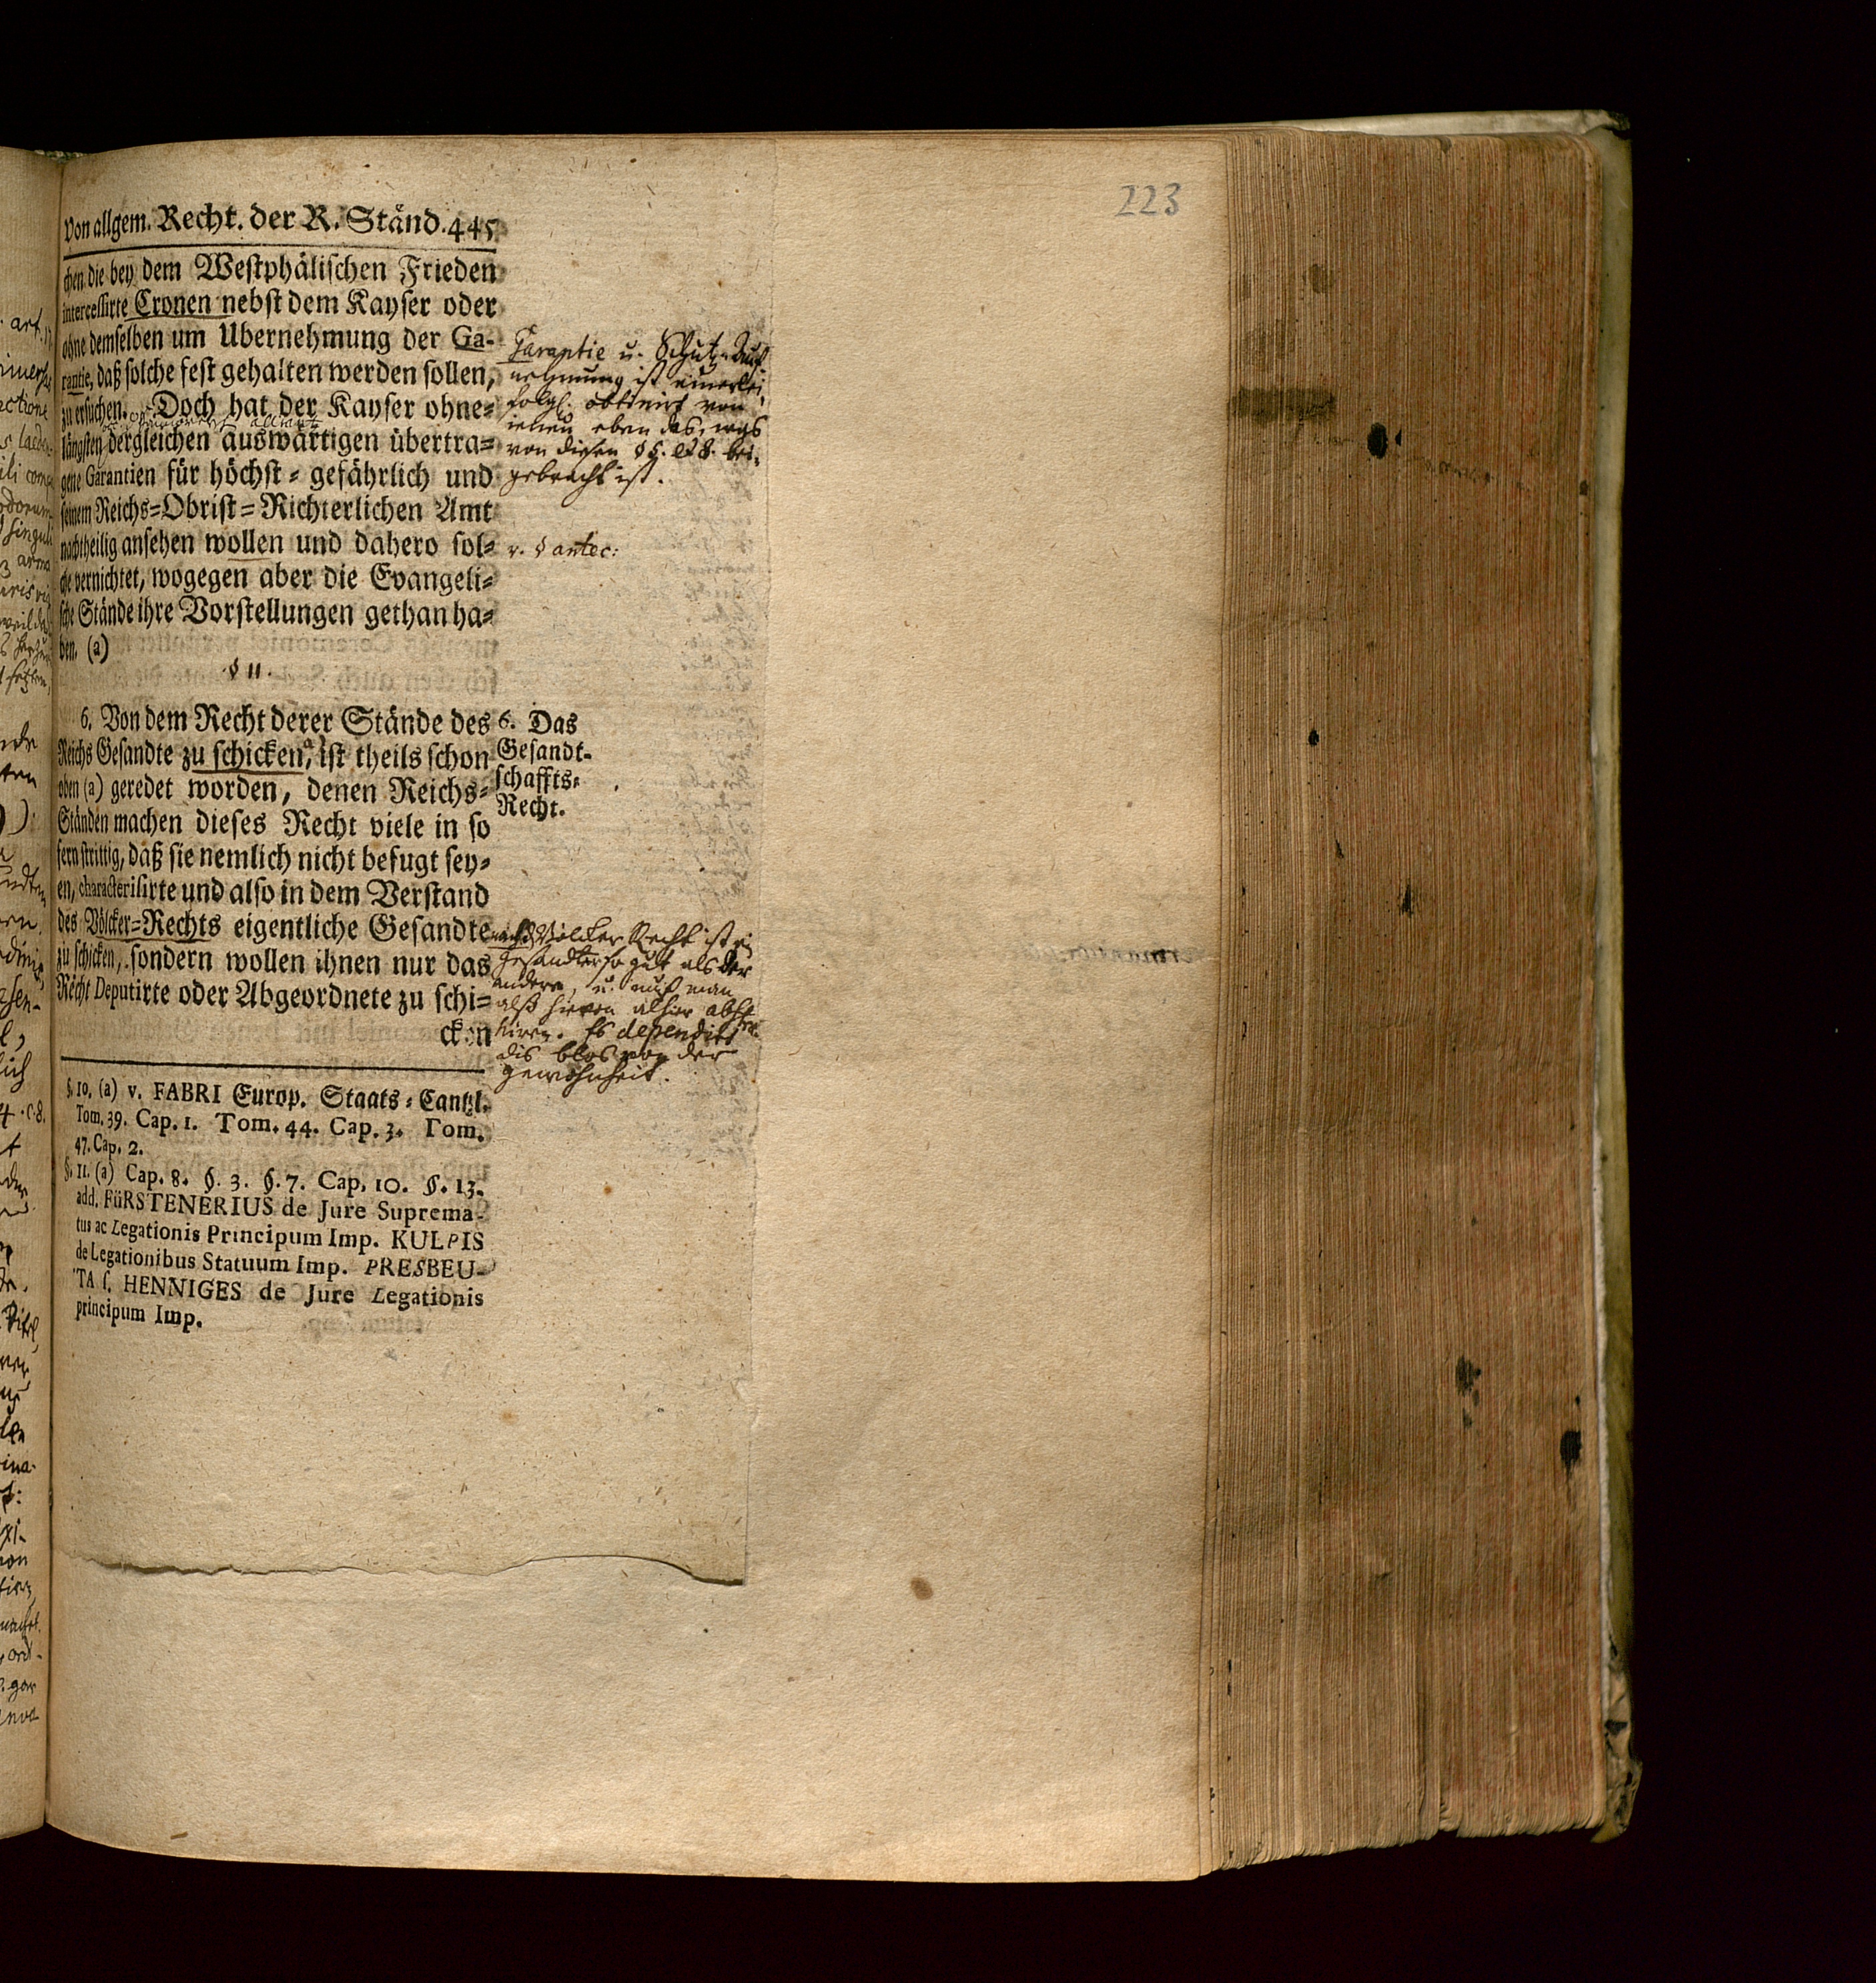 223
von allgem. Recht. der R. Ständ. 445
chen die bey dem Westphälischen Frieden
intercessirte Cronen nebst dem Kayser oder
ohne demselben um Ubernehmung der Ga-
rantie, daß solche fest gehalten werden sollen,
zu ersuchen. Doch hat der Kayser ohne-
längsten dergleichen auswärtigen übertra-
gene Garantien für höchst-gefährlich und
seinem Reichs-Obrist-Richterlichen Amt
nachtheilig ansehen wollen und dahero sol-
che vernichtet, wogegen aber die Evangeli-
sche Stände ihre Vorstellungen gethan ha-
ben. (a)
Garantie u. Schutz-
nehmung ist einerlei,
folgl. obtinirt von
ienen eben das, was
von diesen § 5. et 8. bei-
gebracht ist.
v. § antec:
§ 11.
6. Von dem Recht derer Stände des
Reichs Gesandte zu schicken, ist theils schon
oben (a) geredet worden, denen Reichs-
Ständen machen dieses Recht viele in so
fern strittig, daß sie nemlich nicht befugt sey-
en, characterisirte und also in dem Verstand
des Völcker-Rechts eigentliche Gesandte
zu schicken, sondern wollen ihnen nur das
Recht Deputirte oder Abgeordnete zu schi-
cken
6. Das
Gesandt-
schaffts-
Recht.
Völcker Recht ist ein
gesandter so gut als der
andere, u. muß man
alß hievon alhier abst
hiren. Es dependirt
dis blos von der
gewohnheit.
§. 10. (a) v. FABRI Europ. Staats-Cantzl.
Tom. 39. Cap. 1. Tom. 44. Cap. 3. Tom.
47. Cap. 2.
§. 11. (a) Cap. 8. §. 3. §. 7. Cap. 10. §. 13.
add. FüRSTENERIUS de Jure Suprema-
tus ac Legationis Principum Imp. KULPIS
de Legationibus Statuum Imp. PRESBEU-
TA s. HENNIGES de Jure Legationis
principum Imp.